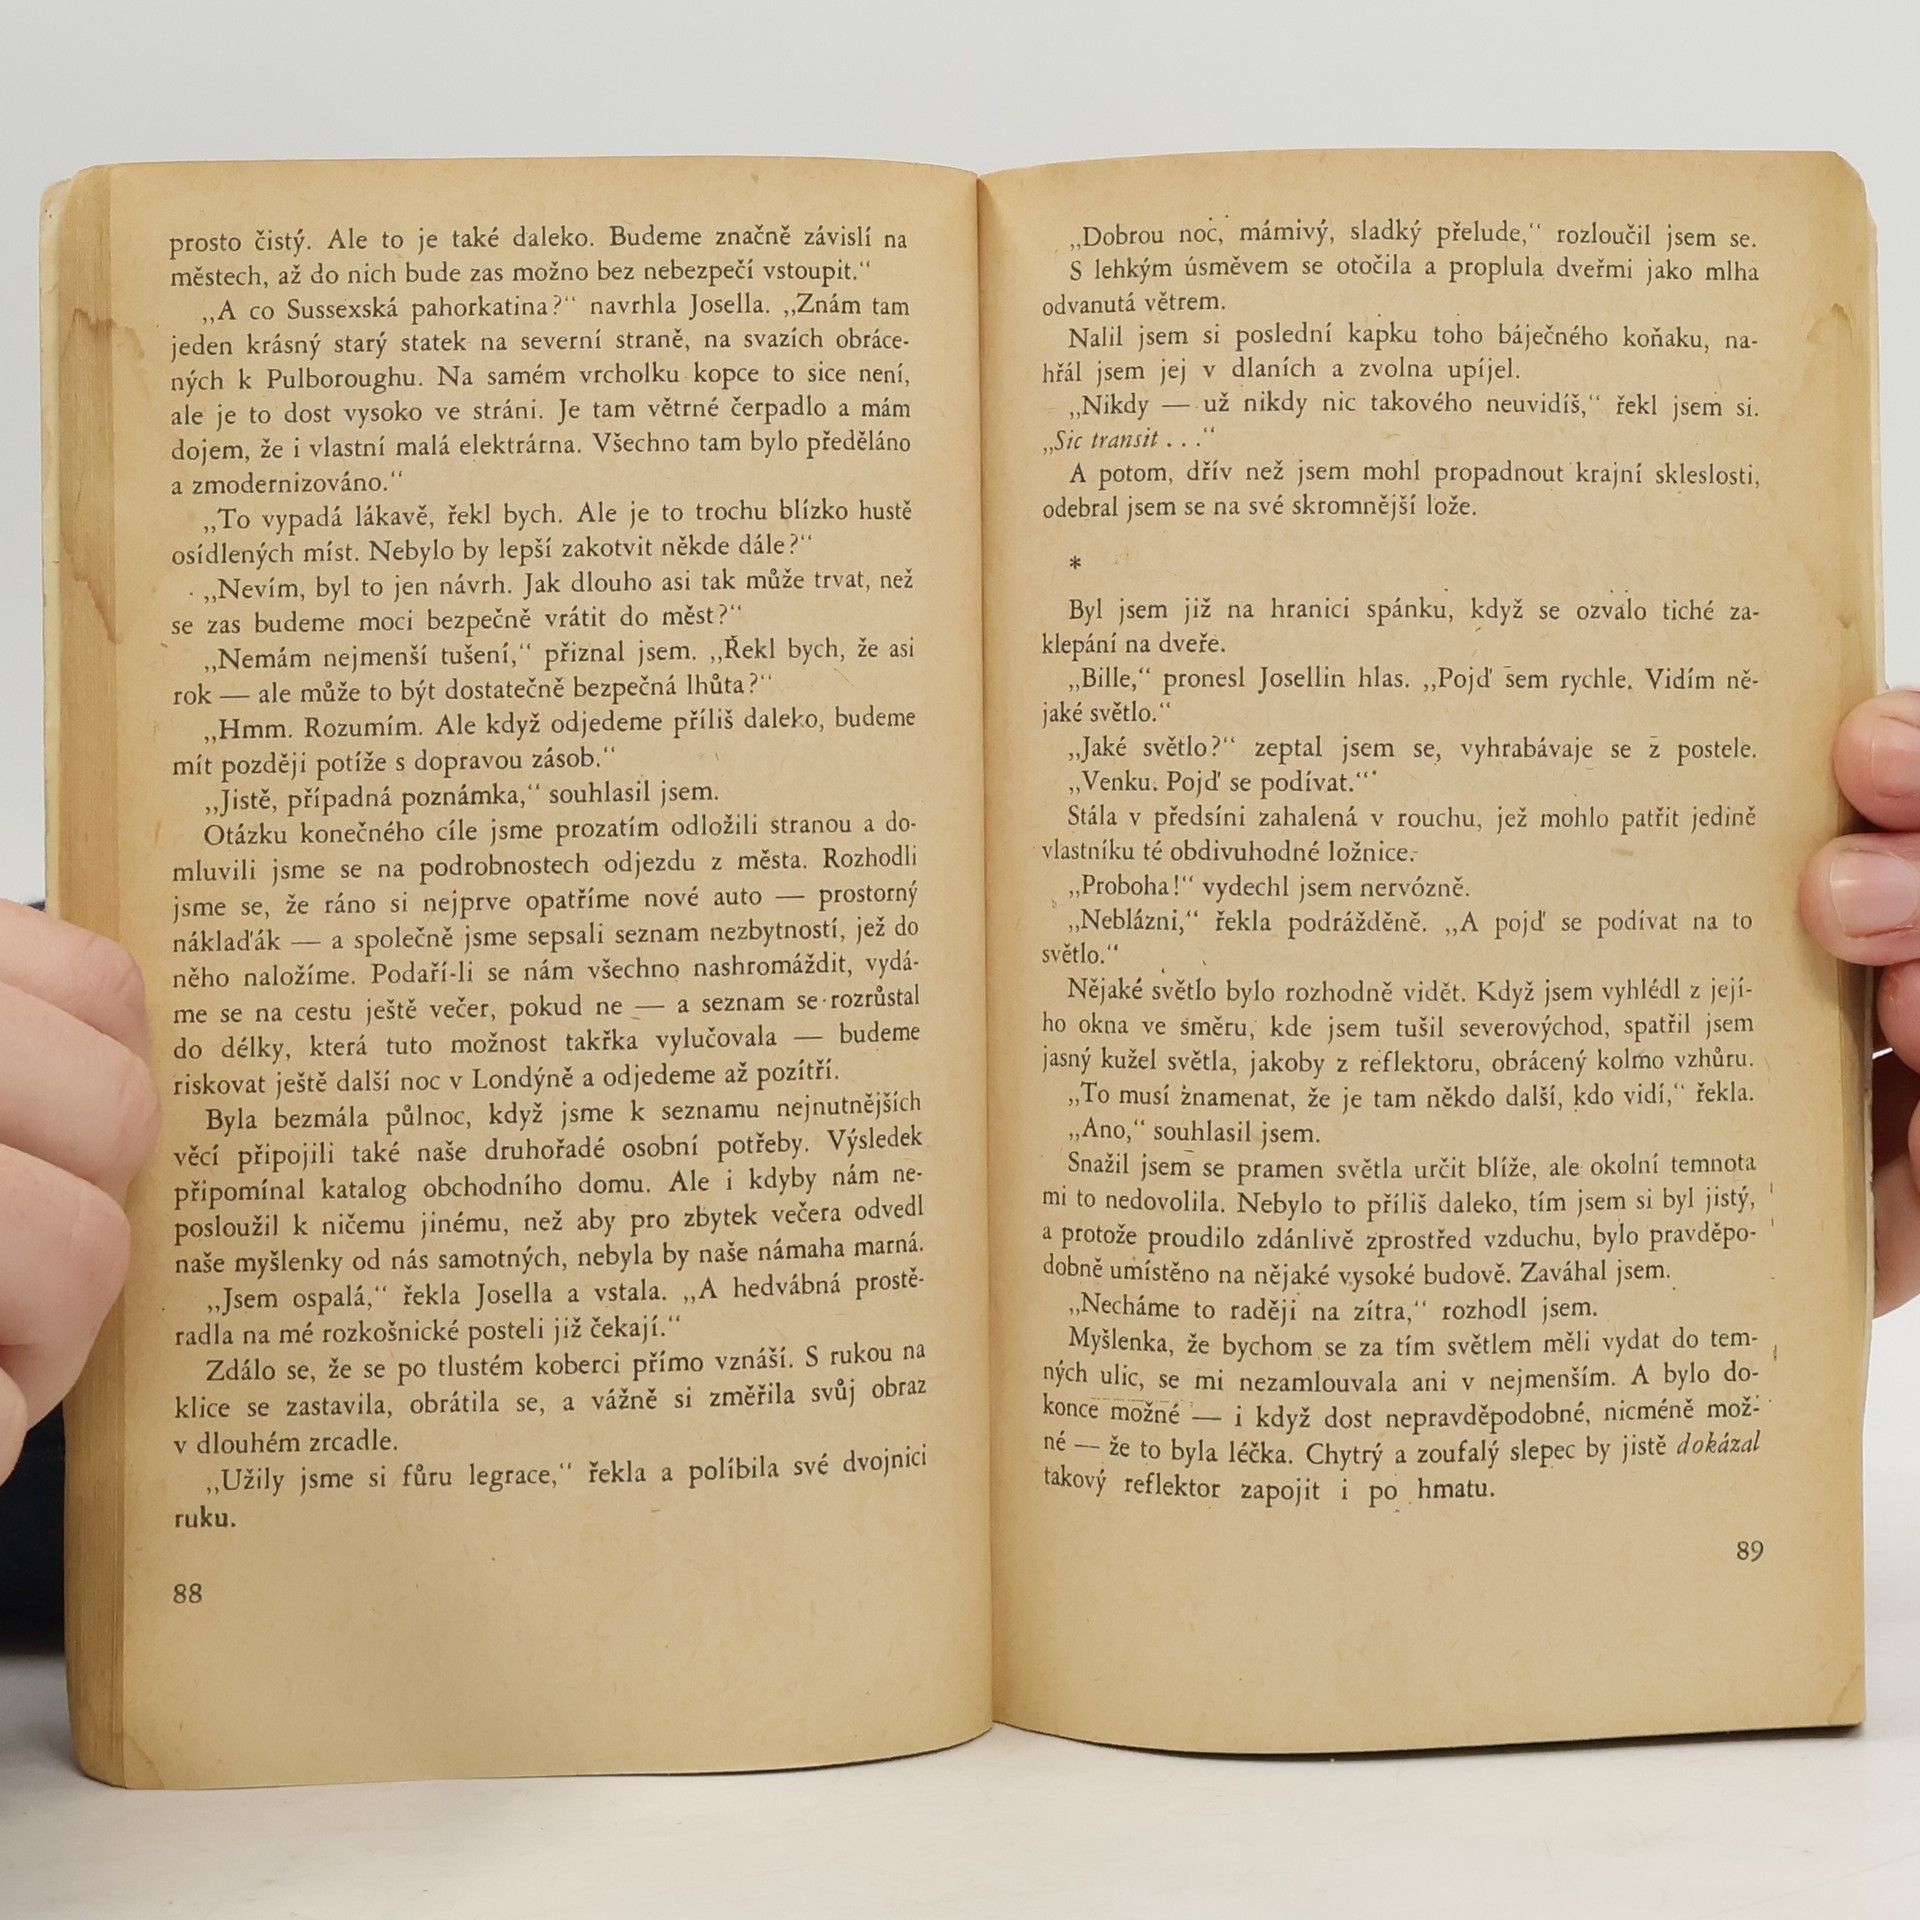 prosto čistý. Ale to je také daleko. Budeme značně závislí na
městech, až do nich bude zas možno bez nebezpečí vstoupit.“
„A co Sussexská pahorkatina?“ navrhla Josella. „Znám tam
jeden krásný starý statek na severní straně, na svazích obráce-
ných k Pulboroughu. Na samém vrcholku kopce to sice není,
ale je to dost vysoko ve stráni. Je tam větrné čerpadlo a mám
dojem, že i vlastní malá elektrárna. Všechno tam bylo předěláno
a zmodernizováno.“
„To vypadá lákavě, řekl bych. Ale je to trochu blízko hustě
osídlených míst. Nebylo by lepší zakotvit někde dále?“
„Nevím, byl to jen návrh. Jak dlouho asi tak může trvat, než
se zas budeme moci bezpečně vrátit do měst?“
„Nemám nejmenší tušení,“ přiznal jsem. „Řekl bych, že asi
rok — ale může to být dostatečně bezpečná lhůta?“
„Hmm. Rozumím. Ale když odjedeme příliš daleko, budeme
mít později potíže s dopravou zásob.“
„Jistě, případná poznámka,“ souhlasil jsem.
Otázku konečného cíle jsme prozatím odložili stranou a do-
mluvili jsme se na podrobnostech odjezdu z města. Rozhodli
jsme se, že ráno si nejprve opatříme nové auto — prostorný
náklaďák — a společně jsme sepsali seznam nezbytností, jež do
něho naložíme. Podaří-li se nám všechno nashromáždit, vydá-
me se na cestu ještě večer, pokud ne — a seznam se rozrůstal
do délky, která tuto možnost takřka vylučovala — budeme
riskovat ještě další noc v Londýně a odjedeme až pozítří.
Byla bezmála půlnoc, když jsme k seznamu nejnutnějších
věcí připojili také naše druhořadé osobní potřeby. Výsledek
připomínal katalog obchodního domu. Ale i kdyby nám ne-
posloužil k ničemu jinému, než aby pro zbytek večera odvedl
naše myšlenky od nás samotných, nebyla by naše námaha marná.
„Jsem ospalá,“ řekla Josella a vstala. „A hedvábná prostě-
radla na mé rozkošnické posteli již čekají.“
Zdálo se, že se po tlustém koberci přímo vznáší. S rukou na
klice se zastavila, obrátila se, a vážně si změřila svůj obraz
v dlouhém zrcadle.
„Užily jsme si fůru legrace,“ řekla a políbila své dvojnici
ruku.
88
„Dobrou noc, mámivý, sladký přelude,“ rozloučil jsem se.
S lehkým úsměvem se otočila a proplula dveřmi jako mlha
odvanutá větrem.
Nalil jsem si poslední kapku toho báječného koňaku, na-
hřál jsem jej v dlaních a zvolna upíjel.
„Nikdy — už nikdy nic takového neuvidíš,“ řekl jsem si.
„Sic transit . . .“
A potom, dřív než jsem mohl propadnout krajní skleslosti,
odebral jsem se na své skromnější lože.
*
Byl jsem již na hranici spánku, když se ozvalo tiché za-
klepání na dveře.
„Bille,“ pronesl Josellin hlas. „Pojď sem rychle. Vidím ně-
jaké světlo.“
„Jaké světlo?“ zeptal jsem se, vyhrabávaje se z postele.
„Venku. Pojď se podívat.“
Stála v předsíni zahalená v rouchu, jež mohlo patřit jedině
vlastníku té obdivuhodné ložnice.
„Proboha!“ vydechl jsem nervózně.
„Neblázni,“ řekla podrážděně. „A pojď se podívat na to
světlo.“
Nějaké světlo bylo rozhodně vidět. Když jsem vyhlédl z její-
ho okna ve směru, kde jsem tušil severovýchod, spatřil jsem
jasný kužel světla, jakoby z reflektoru, obrácený kolmo vzhůru.
„To musí znamenat, že je tam někdo další, kdo vidí,“ řekla.
„Ano,“ souhlasil jsem.
Snažil jsem se pramen světla určit blíže, ale okolní temnota
mi to nedovolila. Nebylo to příliš daleko, tím jsem si byl jistý,
a protože proudilo zdánlivě zprostřed vzduchu, bylo pravděpo-
dobně umístěno na nějaké vysoké budově. Zaváhal jsem.
„Necháme to raději na zítra,“ rozhodl jsem.
Myšlenka, že bychom se za tím světlem měli vydat do tem-
ných ulic, se mi nezamlouvala ani v nejmenším. A bylo do-
konce možné — i když dost nepravděpodobné, nicméně mož-
né — že to byla léčka. Chytrý a zoufalý slepec by jistě dokázal
takový reflektor zapojit i po hmatu.
89